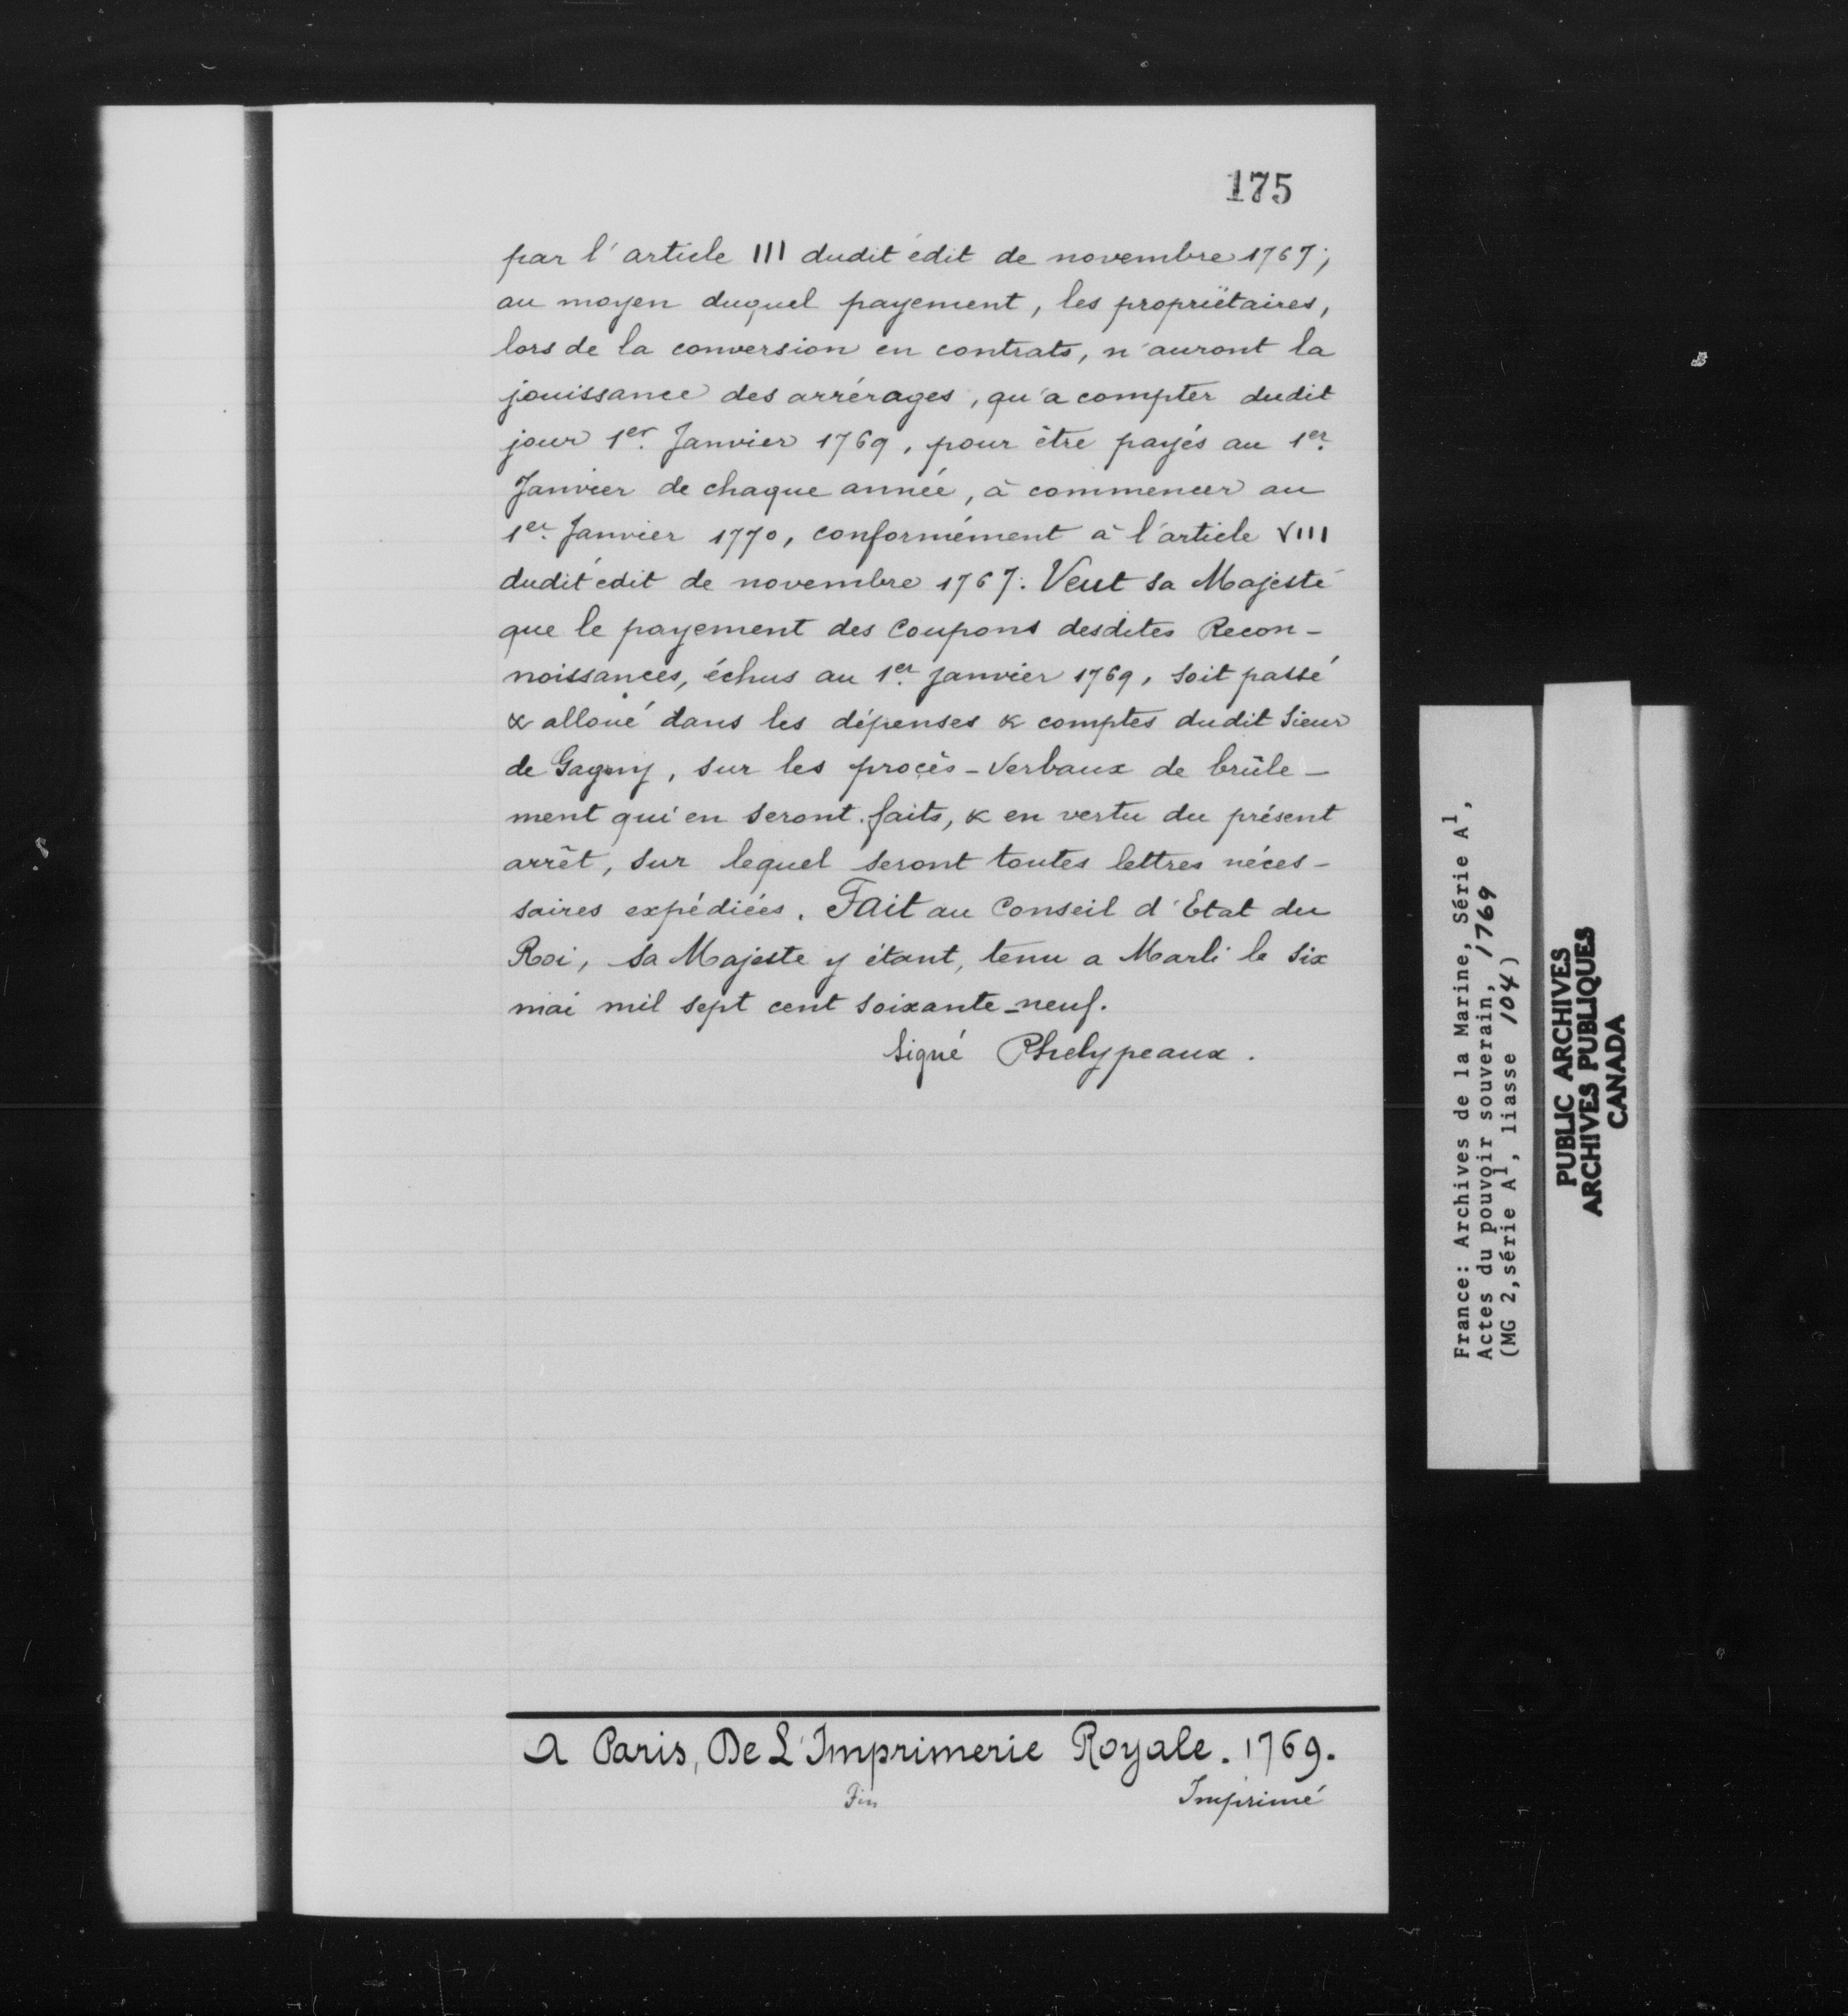 175
par l'article III dudit édit de novembre 1767;
au moyen duquel payement, les propriétaires,
lors de la conversion en contrats, n'auront la
jouissance des arrérages, qu'a compter dudit
jour 1er. Janvier 1769, pour être payés au 1er.
Janvier de chaque année, à commencer au
1er. Janvier 1770, conformément à l'article VIII
dudit édit de novembre 1767: Veut sa Majesté
que le payement des Coupons desdites Recon-
noissances, échus au 1er. janvier 1769, soit passé
& alloué dans les dépenses & comptes dudit Sieur
de Gagny, sur les procès-Verbaux de brûle-
ment qui en seront faits, & en vertu du présent
arrêt, sur lequel seront toutes lettres néces-
saires expédiées. Fait au Conseil d'Etat du
Roi, sa Majeste y étant, tenu a Marli le six
mai mil sept cent soixante-neuf.
Signé Phelypeaux.
A Paris, De L'Imprimerie Royale. 1769.
Fin Imprimé
France: Archives de la Marine, Série A1,
Actes du pouvoir souverain, 1769
(MG 2, série A1, liasse 104)
PUBLIC ARCHIVES
ARCHIVES PUBLIQUES
CANADA